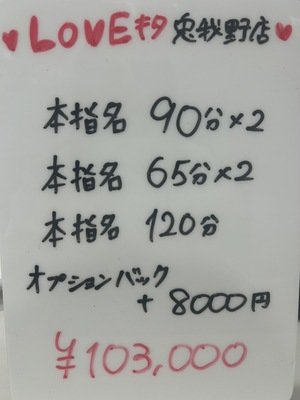 ♥LOVEキタ 兎我野店♥
本指名 90分×2
本指名 65分×2
本指名 120分
オプションバック
+ 8000円
¥103,000